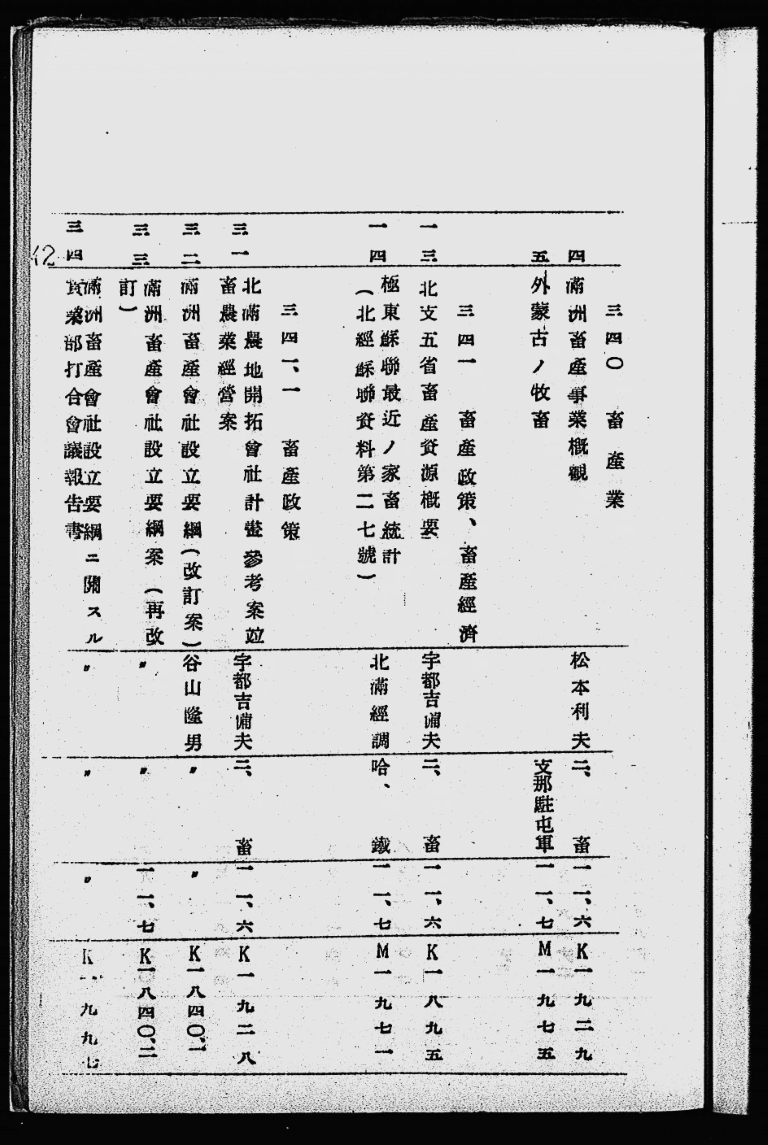 三四〇　畜産業
四　滿洲畜產事業概觀　松本利夫　二、畜　一一、六　K一九二九
五　外蒙古ノ牧畜　支那駐屯軍　一一、七　M一九七五
三四一　畜產政策、畜產經濟
一三　北支五省畜產資源概要　宇都吉備夫　二、畜　一一、六　K一八九五
一四　極東蘇聯最近ノ家畜統計　北滿經調　哈、鐵　一一、七　M一九七一
(北經蘇聯資料第二七號)
三四一、一　畜產政策
三一　北滿農地開拓會社計畫參考案竝　宇都吉備夫　二、畜　一一、六　K一九二八
畜農業經營案
三二　滿洲畜產會社設立要綱(改訂案)　谷山隆男　〃　〃　K一八四〇、一
三三　滿洲畜產會社設立要綱案(再改　〃　〃　一一、七　K一八四〇、二
訂)
三四　滿洲畜產會社設立要綱ニ關スル　〃　〃　〃　K一、九九七
實業部打合會議報告書
42